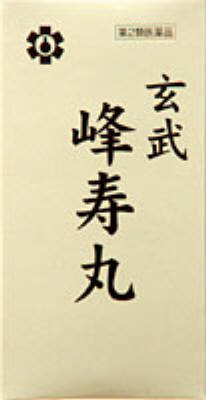 第2類医薬品
玄武
峰寿丸